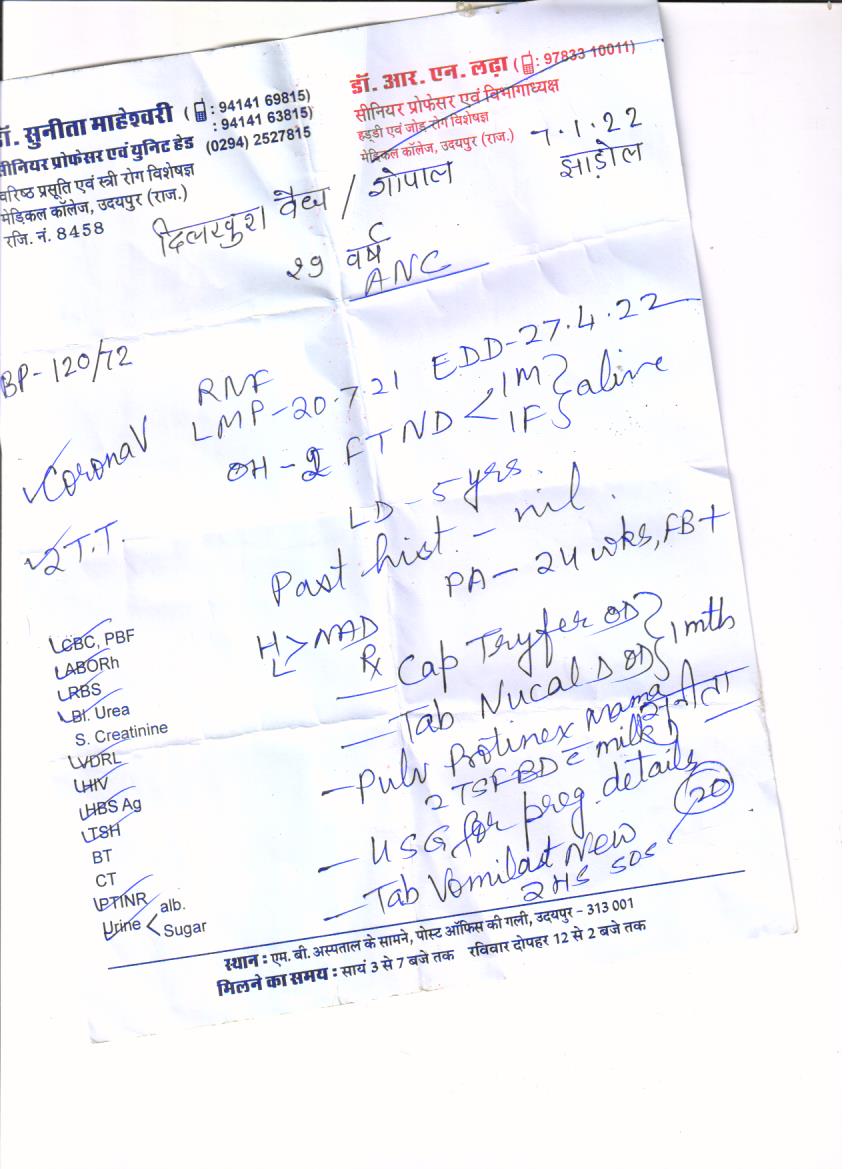 डॉ. सुनीता माहेश्वरी ( : 94141 69815)
: 94141 63815)
सीनियर प्रोफेसर एवं यूनिट हेड (0294) 2527815
वरिष्ठ प्रसूति एवं स्त्री रोग विशेषज्ञ
मेडिकल कॉलेज, उदयपुर (राज.)
रजि. नं. 8458
डॉ. आर. एन. लढ़ा ( : 97833 10011)
सीनियर प्रोफेसर एवं विभागाध्यक्ष
हड्डी एवं जोड़ रोग विशेषज्ञ
मेडिकल कॉलेज, उदयपुर (राज.)
7.1.22
झाड़ोल
दिलखुश वैध / गोपाल
29 वर्ष
ANC
BP-120/72
RMF
LMP-20.7.21 EDD-27.4.22
OH - 2 FTND < 1M 1F } alive
Corona V
LD - 5 yrs.
2 T.T.
Past hist. - nil.
PA - 24 wks, FB+
H L > NAD
CBC, PBF
ABORh
RBS
Bl. Urea
S. Creatinine
VDRL
HIV
HBS Ag
TSH
BT
CT
PTINR
Urine < alb.
Sugar
Rx
- Cap Tryfer OD
- Tab Nucal D OD } 1 mth
- Pulv Protinex Mama
2 TSF BD c milk
सुनीता
- USG for preg. details
- Tab Vomilast New (20)
2 HS SOS
स्थान : एम. बी. अस्पताल के सामने, पोस्ट ऑफिस की गली, उदयपुर – 313 001
मिलने का समय : सायं 3 से 7 बजे तक रविवार दोपहर 12 से 2 बजे तक